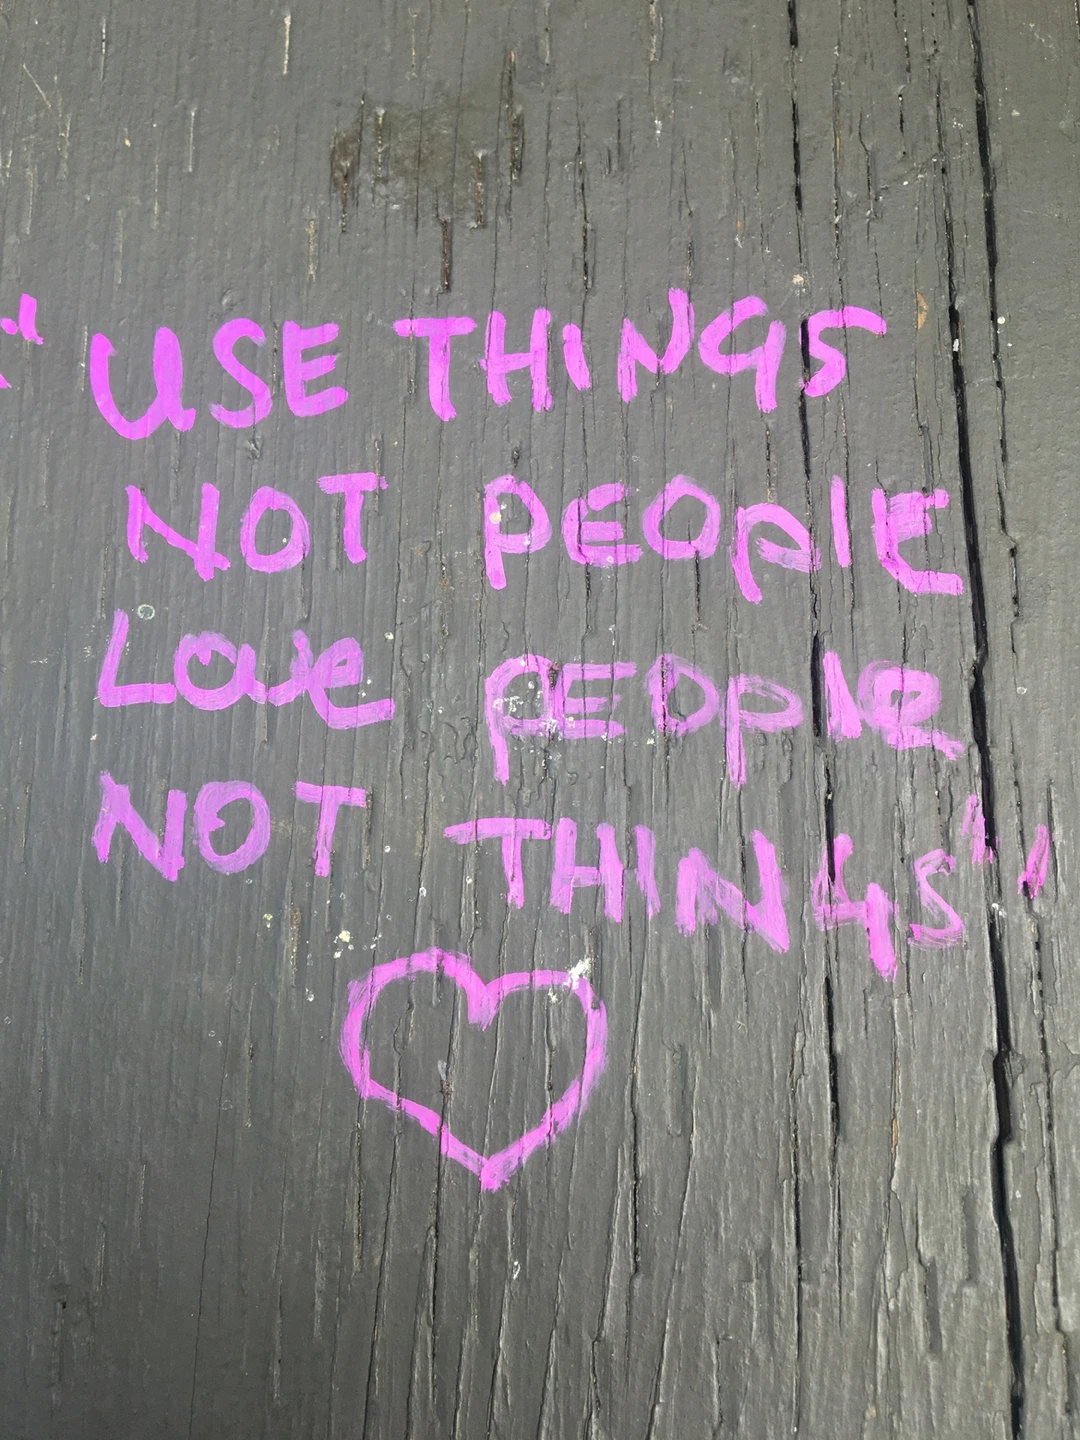 "USE THINGS
NOT PEOPlE
Love PEOple
NOT THINGS"